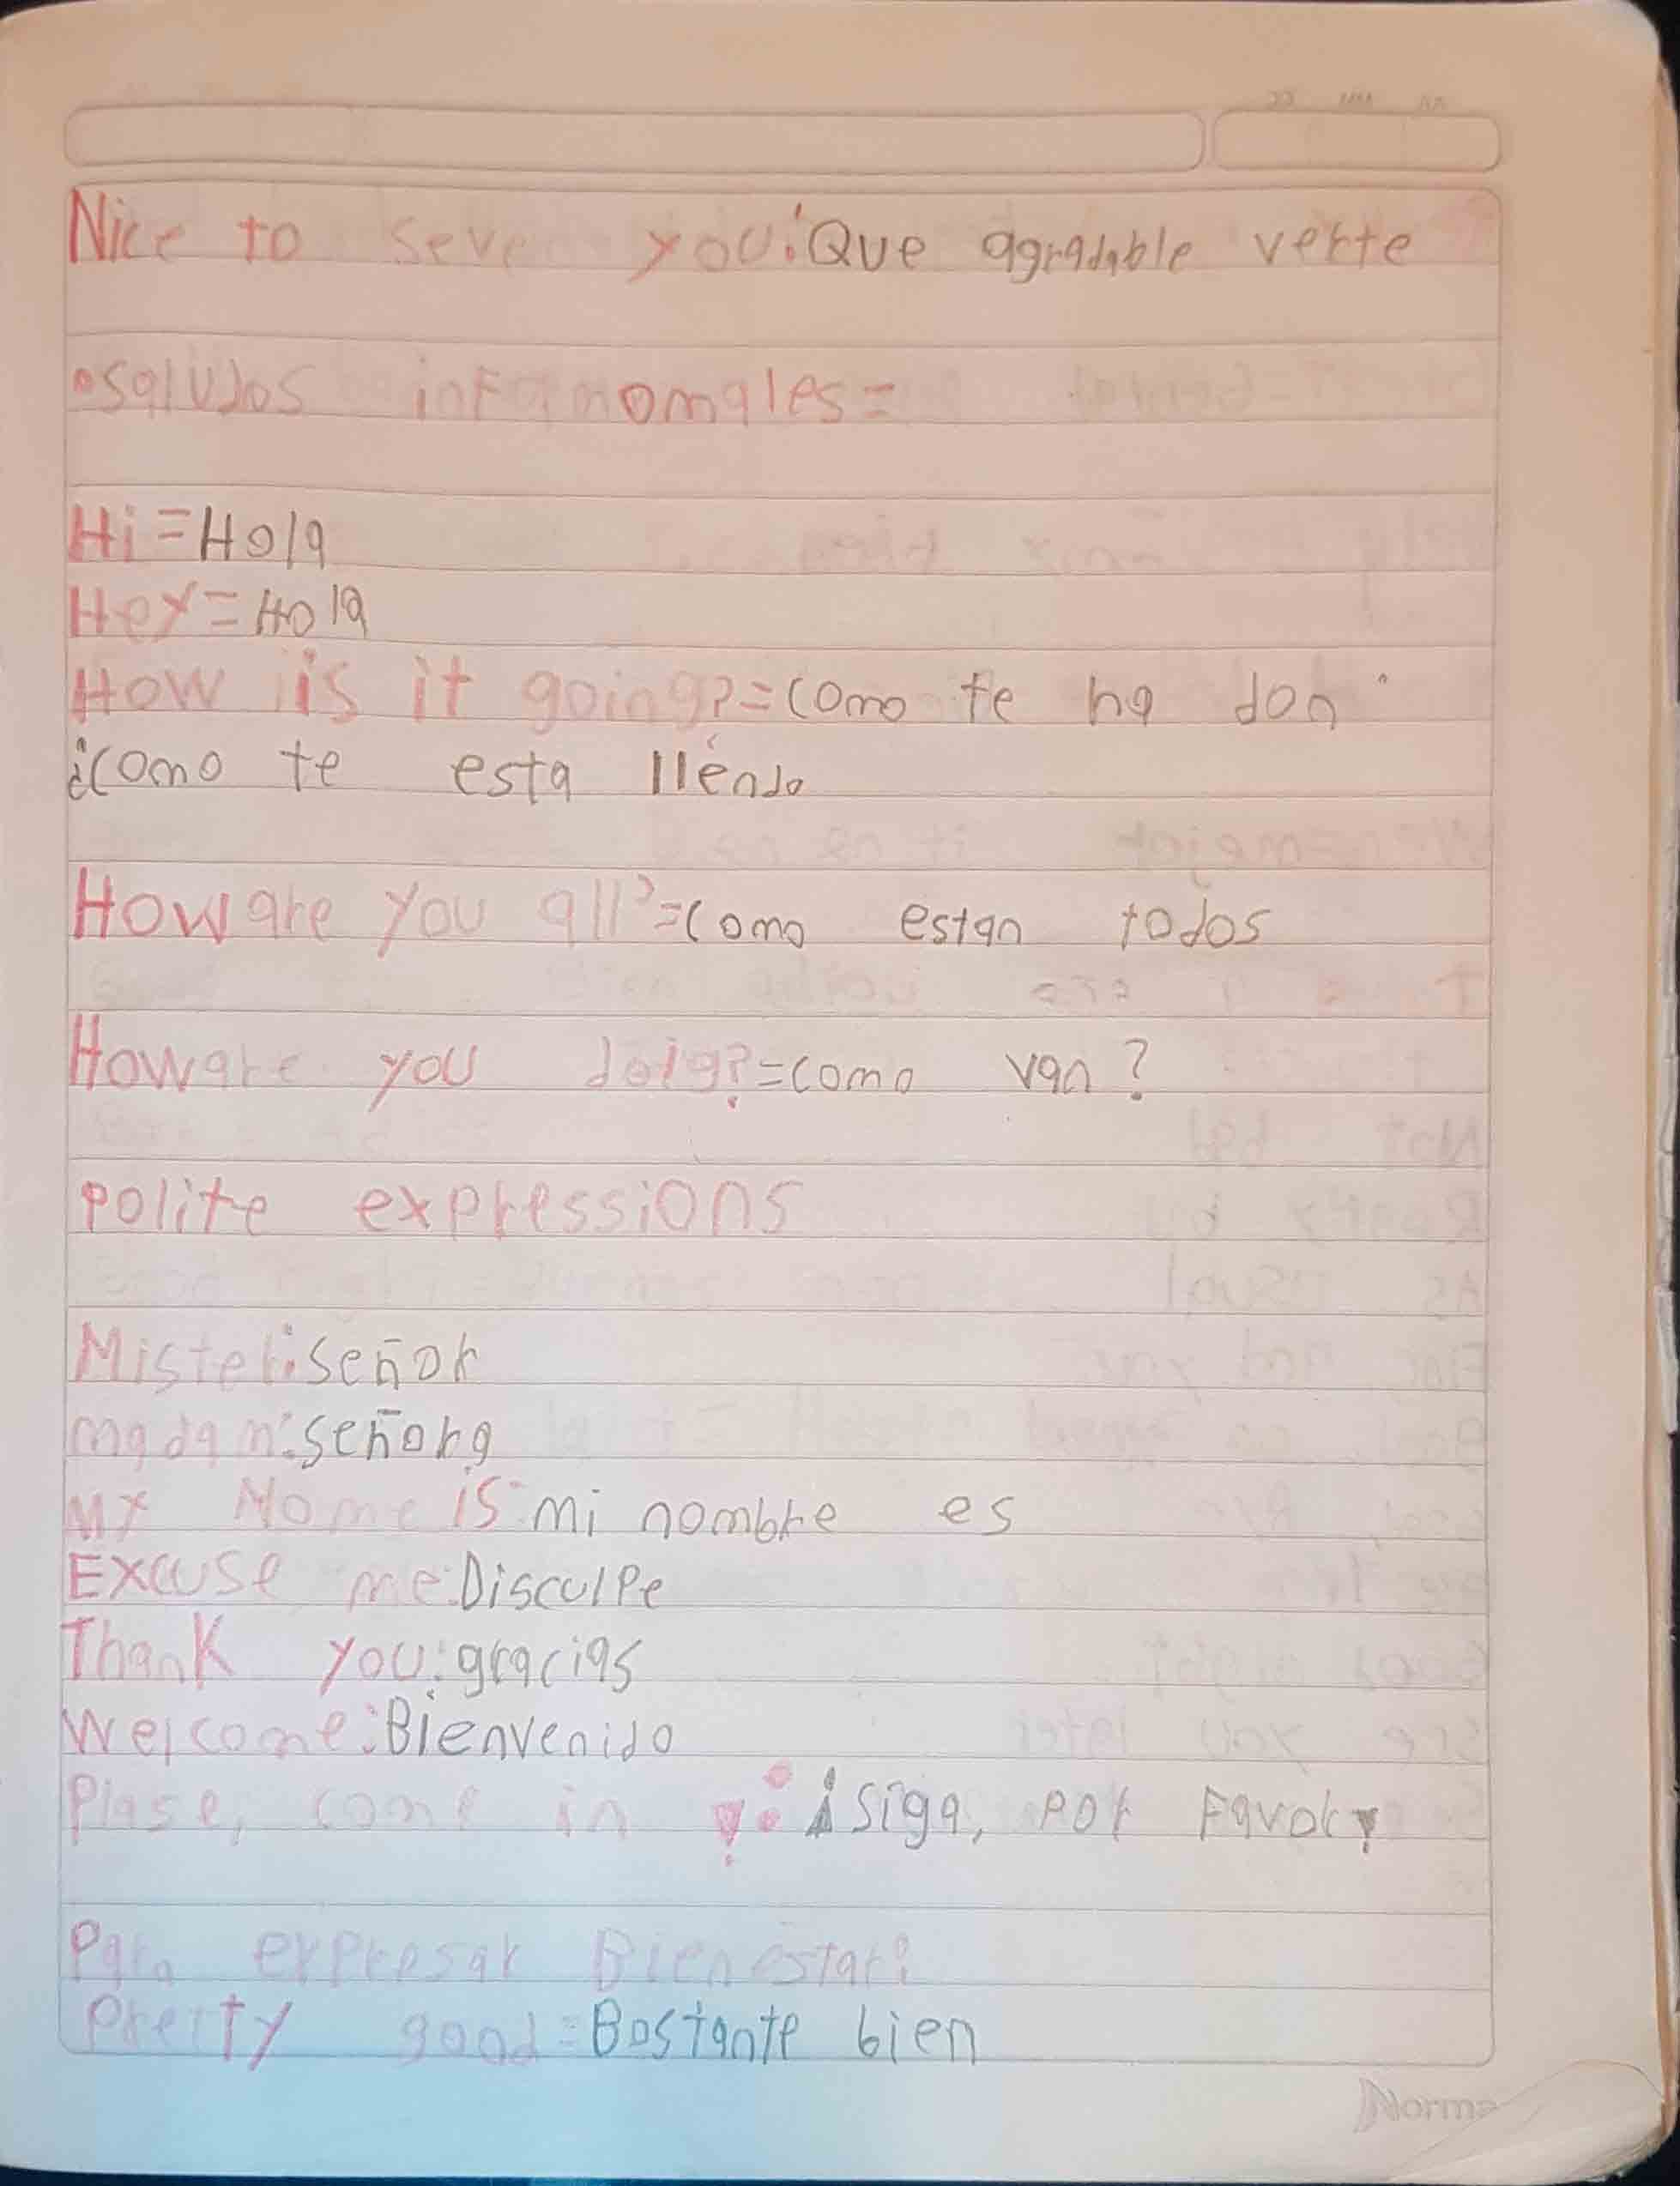 Nice to seve you: Que agradable verte
•saludos infanomales=
Hi=Hola
Hey=Hola
How iis it going?=Como te ha don
¿como te esta lléndo
How are you all?=Como estan todos
How are you doig?=como van?
polite expressions
Mister:señor
madam:señora
My Name is mi nombre es
Excuse me:Disculpe
Thank you:gracias
Welcome:Bienvenido
Plase, come in : ¡siga, por Favor
Para expresar Bienestar:
Pretty good=Bastante bien
Norma